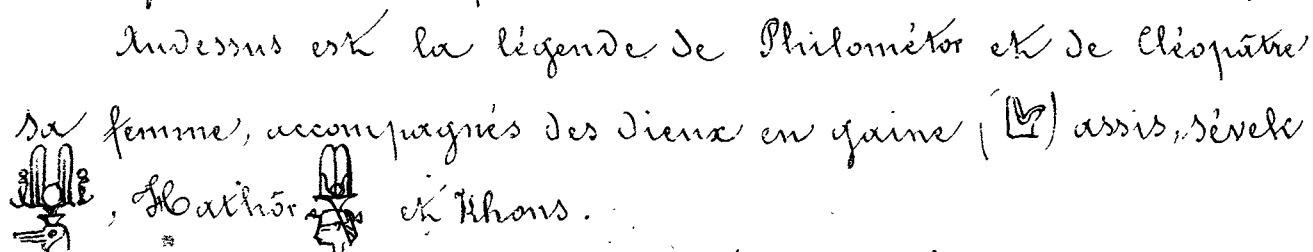 Audessus est la légende de Philométor et de Cléopâtre
sa femme, accompagnés des dieux en gaine, ( ) assis, Sévek
, Hathôr et Khons.